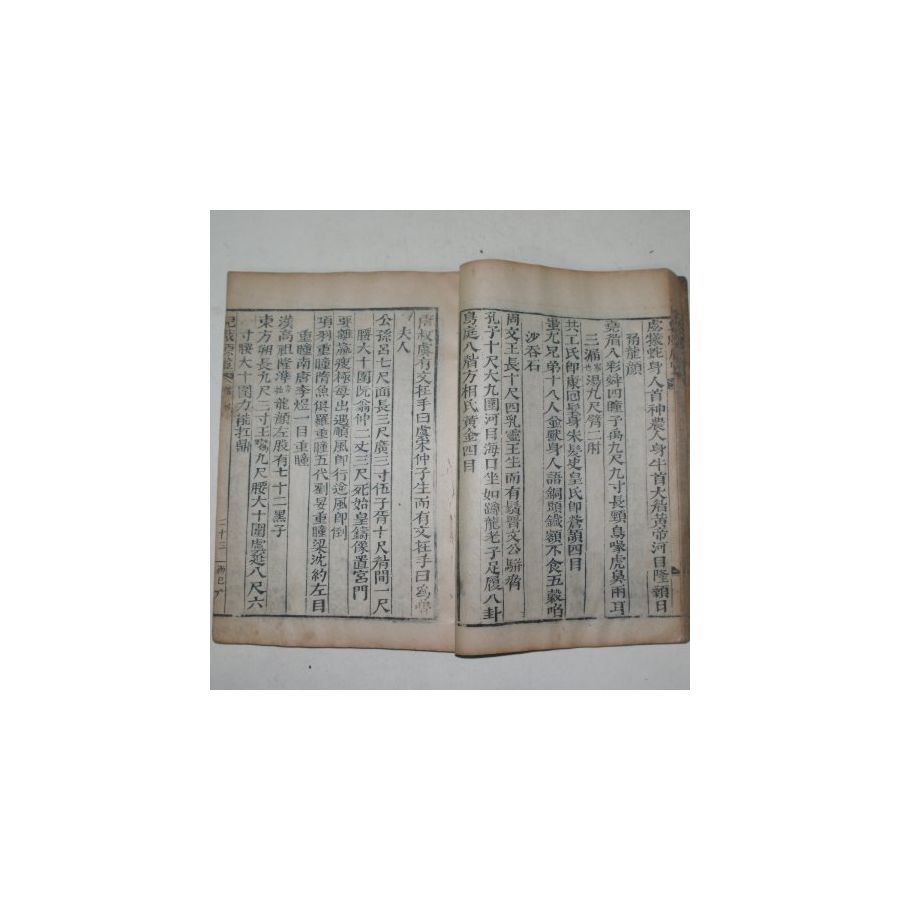 虙犧蛇身人首神農人身牛首大眉黃帝河目隆顙日
角龍顏
堯眉八彩舜四瞳子禹九尺九寸長頸鳥喙虎鼻兩耳
三漏 湯九尺臂二肘
共工氏卽康回髦身朱髮史皇氏卽蒼頡四目
蚩尤兄弟十八人金獸身人語銅頭鐵額不食五穀啗
沙吞石
周文王長十尺四乳靈王生而有髭晉文公騈脅
孔子十尺大九圍河目海口坐如蹲龍老子足履八卦
鳥庭八眉方相氏黃金四目
唐叔虞有文在手曰虞宋仲子生而有文在手曰爲魯
夫人
公孫呂七尺面長三尺廣三寸伍子胥十尺眉間一尺
腰大十圍阮翁仲二丈三尺死始皇鑄像置宮門
瘦極母出遇順風卽行逆風卽倒
項羽重瞳隋魚俱羅重瞳五代劉旻重瞳梁沈約左目
重瞳南唐李煜一目重瞳
漢高祖隆準 龍顏左股有七十二黑子
東方朔長九尺三寸王 九尺腰大十圍虞延八尺六
寸腰大十圍力能扛鼎
二十三